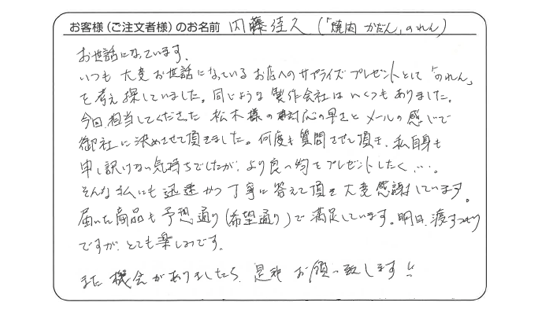 お客様（ご注文者様）のお名前 内藤佳久（「焼肉 かだん」のれん）
お世話になっています。
いつも 大変お世話になっているお店へのサプライズプレゼントとして「のれん」
を考え探していました。同じような製作会社はいくつもありました。
今回担当してくださった 松木様の対応の早さとメールの感じで
御社に決めさせて頂きました。何度も質問させて頂き、私自身も
申し訳けない気持ちでしたが、より良い物をプレゼントしたく…。
そんな私にも迅速かつ丁寧に答えて頂き大変感謝しています。
届いた商品も予想通り(希望通り)で満足しています。明日、渡すつもり
ですが、とても楽しみです。
また機会がありましたら、是非お願い致します!!